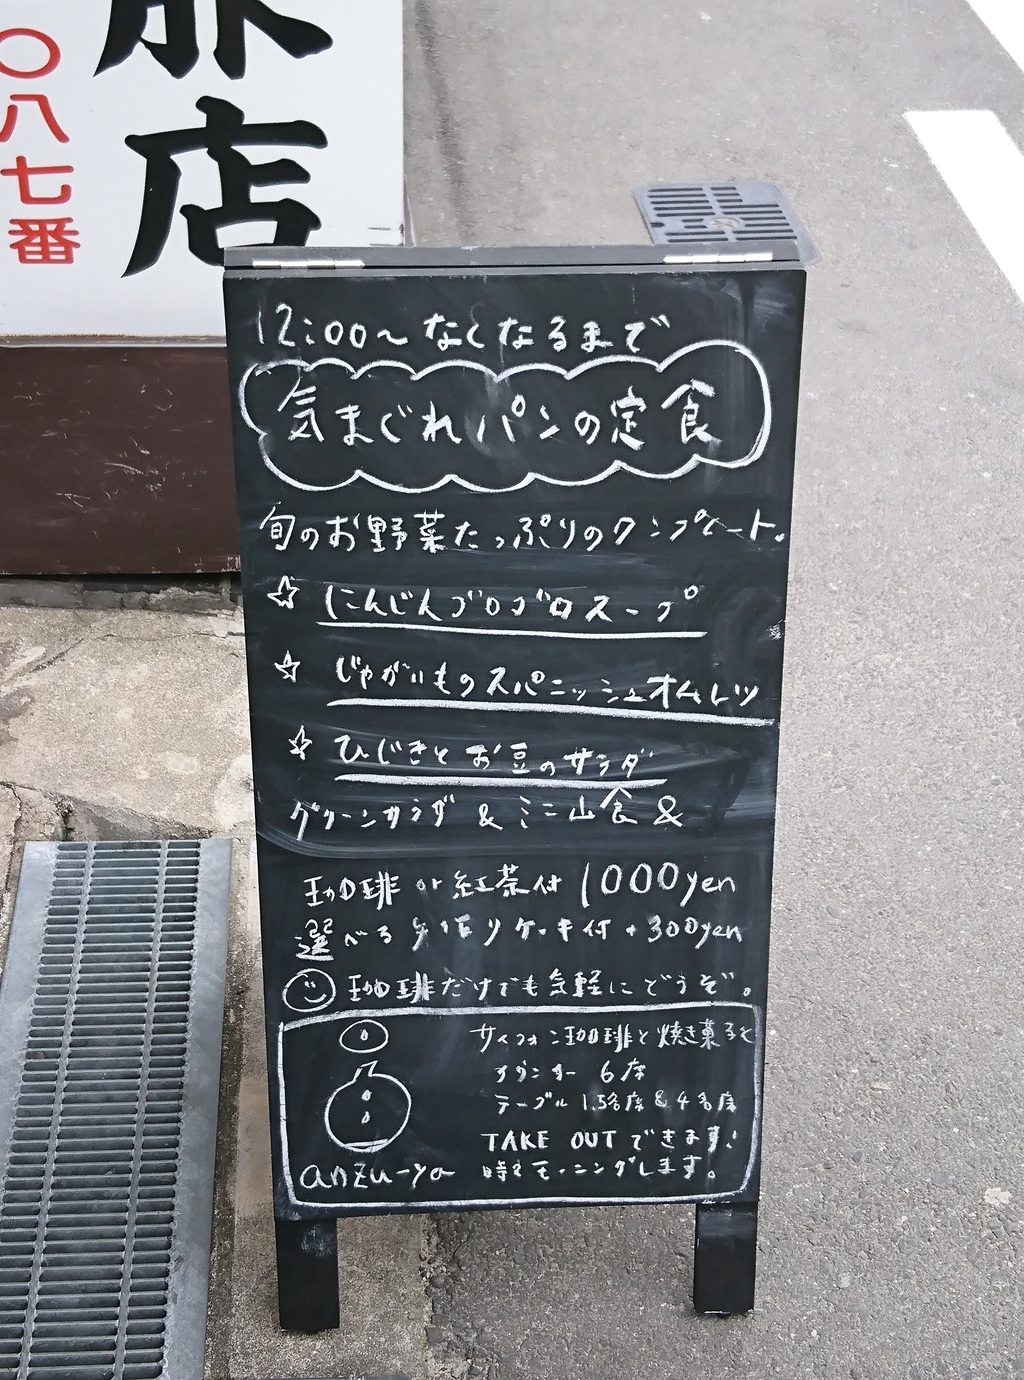 服
店
〇八七番
12:00〜なくなるまで
気まぐれパンの定食
旬のお野菜たっぷりのワンプレート。
☆ にんじんゴロゴロスープ
☆ じゃがいものスパニッシュオムレツ
☆ ひじきとお豆のサラダ
グリーンサラダ & ミニ山食 &
珈琲 or 紅茶付 1000yen
選べる手作りケーキ付 + 300yen
珈琲だけでも気軽にどうぞ。
サイフォン珈琲と焼き菓子と
カウンター 6席
テーブル 1.5名席 & 4名席
TAKE OUT できます!
時々モーニングします。
anzu-ya